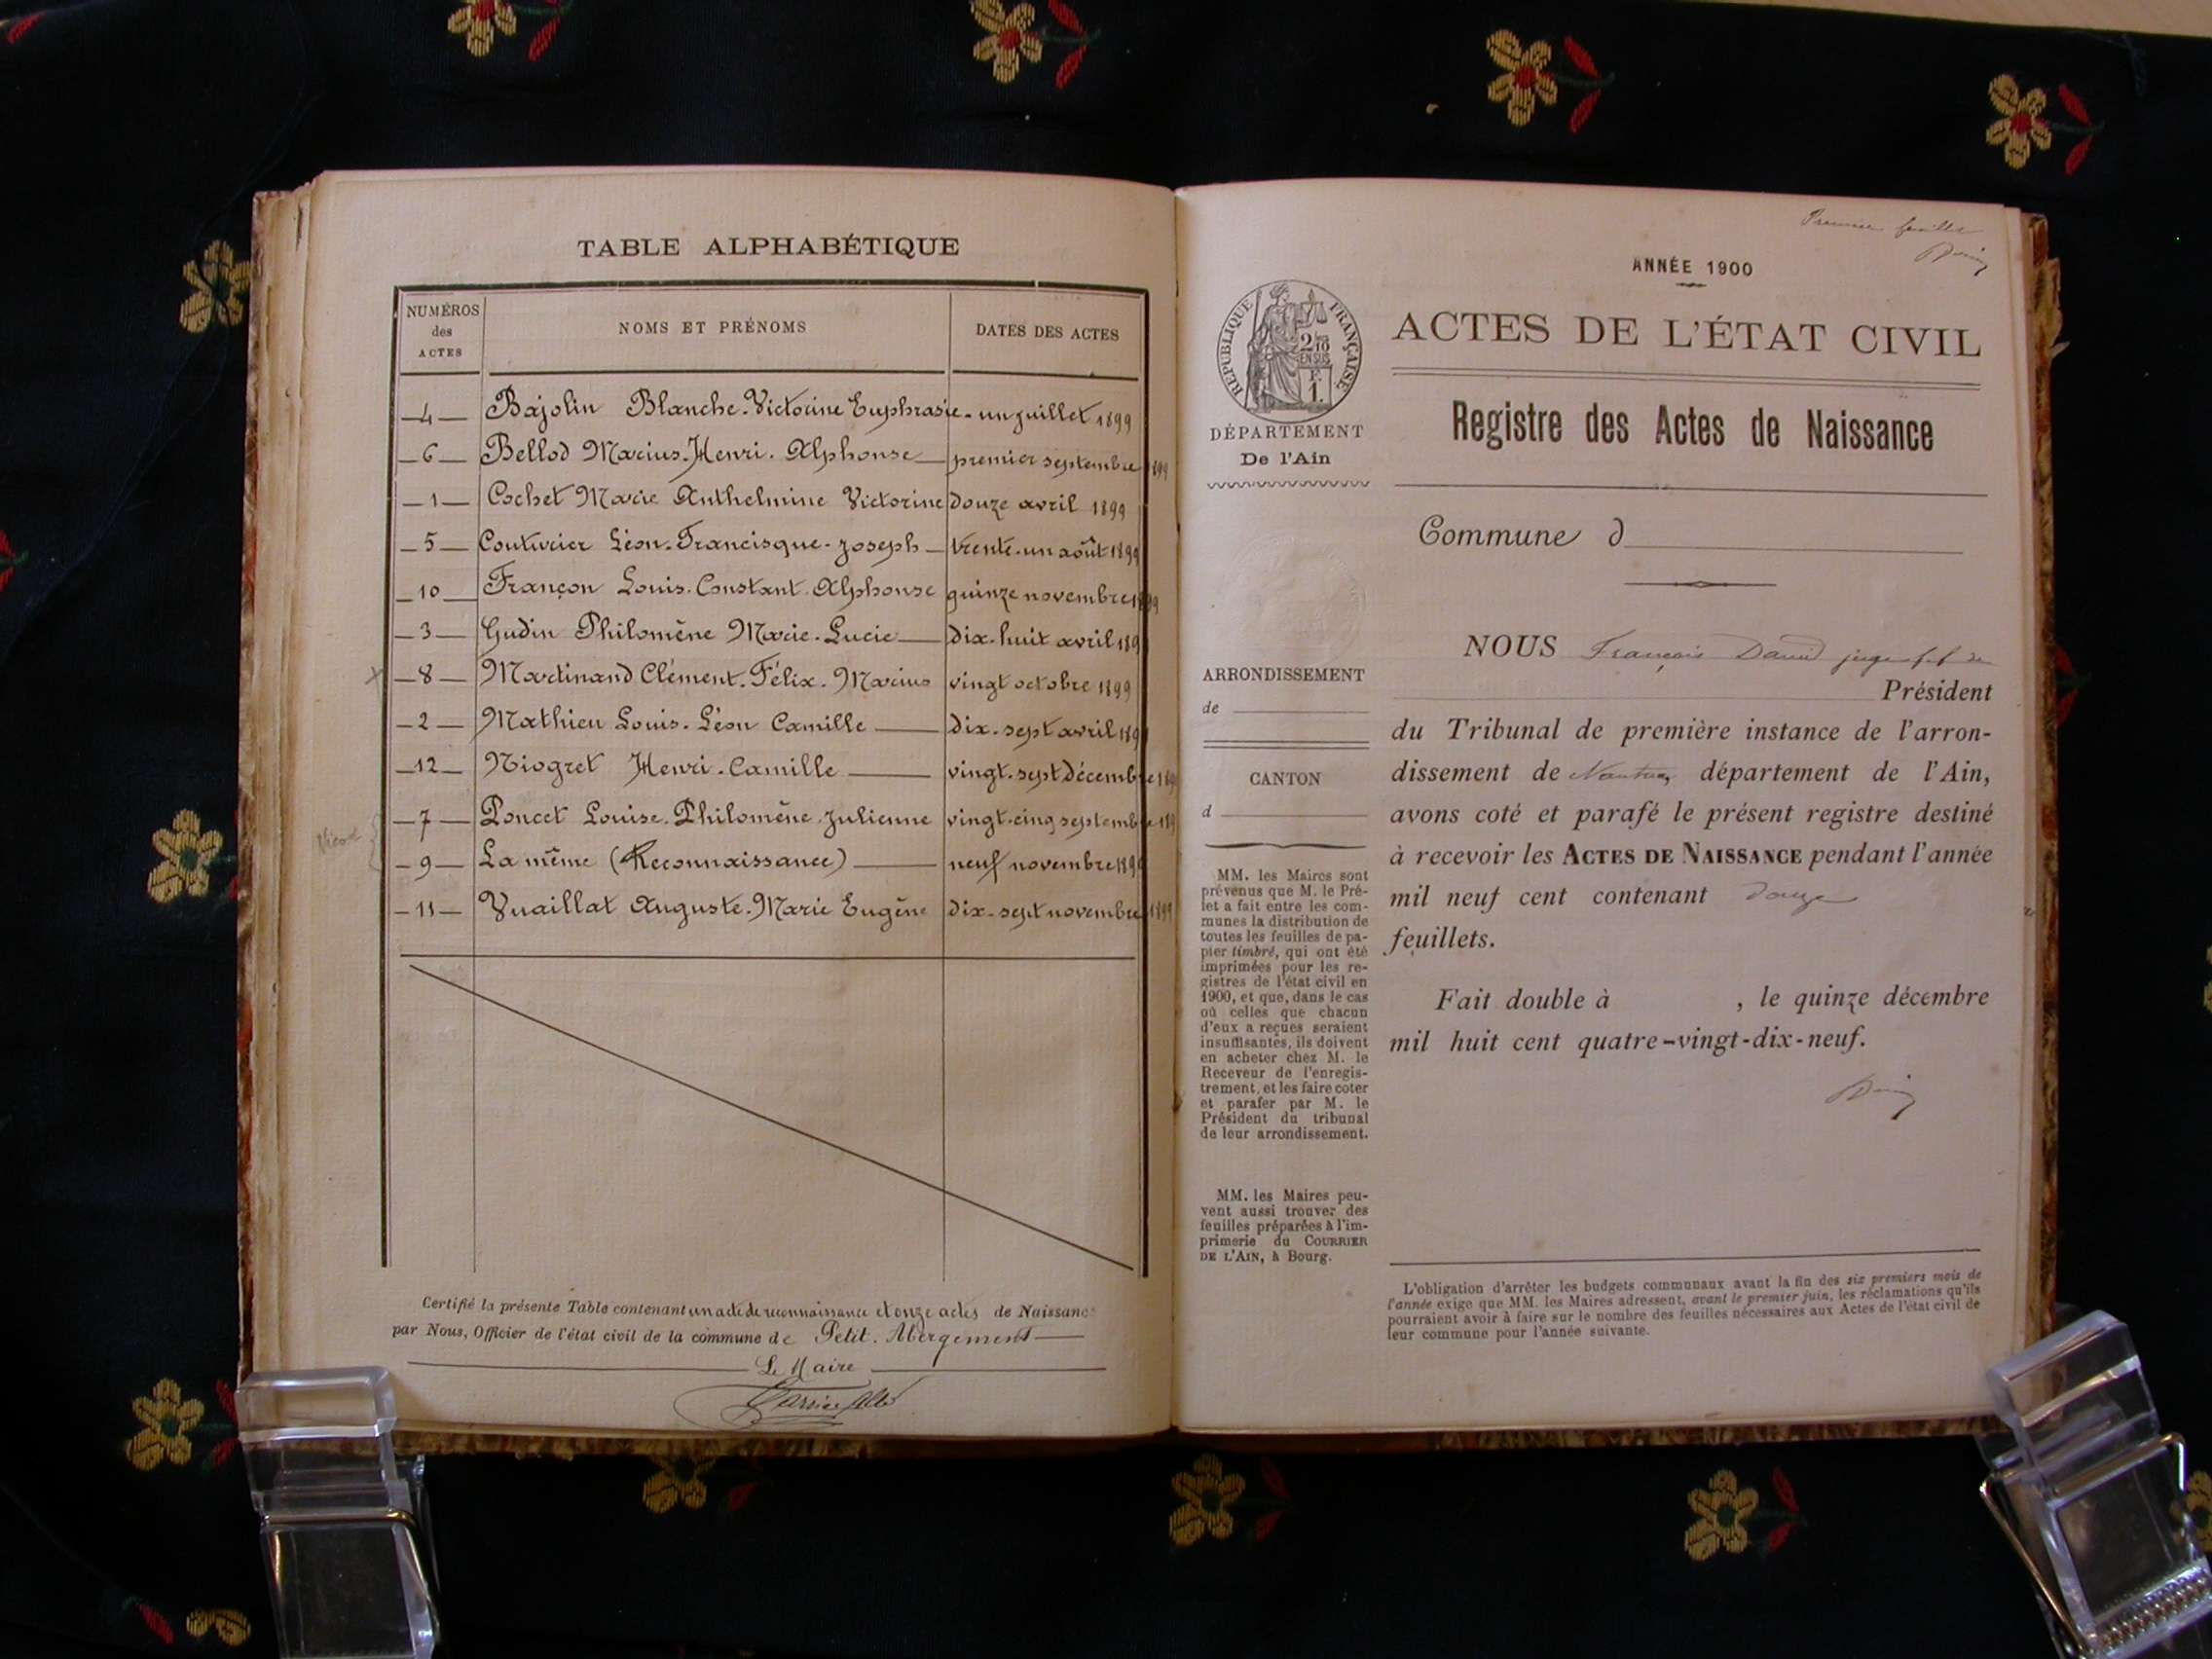 TABLE ALPHABÉTIQUE
NUMÉROS
des
ACTES
NOMS ET PRÉNOMS
DATES DES ACTES
4 Bajolin Blanche-Victorine Euphrasie un juillet 1899
6 Bellod Marius-Henri-Alphonse premier septembre 1899
1 Cochet Marie Anthelmine Victorine douze avril 1899
5 Couturier Léon-Francisque-Joseph trente-un août 1899
10 Françon Louis-Constant-Alphonse quinze novembre 1899
3 Gudin Philomène Marie-Lucie dix-huit avril 189
8 Martinand Clément-Félix-Marius vingt octobre 1899
2 Mathieu Louis-Léon Camille dix-sept avril 189
12 Niogret Henri-Camille vingt-sept décembre 189
7 Poncet Louise-Philomène-Julienne vingt-cinq septembre 189
9 La même (Reconnaissance) neuf novembre 1899
11 Vuaillat Auguste-Marie Eugène dix-sept novembre 1899
Certifié la présente Table contenant un acte de reconnaissance et onze actes de Naissanc
par Nous, Officier de l'état civil de la commune de Petit-Abergement
Le Maire
Premier feuillet
ANNÉE 1900
RÉPUBLIQUE FRANÇAISE
2/10
EN SUS
F.
1.
ACTES DE L'ÉTAT CIVIL
DÉPARTEMENT
De l'Ain
Registre des Actes de Naissance
Commune d
NOUS François David juge
Président
du Tribunal de première instance de l'arron-
dissement de Nantua, département de l'Ain,
avons coté et parafé le présent registre destiné
à recevoir les ACTES DE NAISSANCE pendant l'année
mil neuf cent contenant douze
feuillets.
Fait double à , le quinze décembre
mil huit cent quatre-vingt-dix-neuf.
ARRONDISSEMENT
de
CANTON
d
MM. les Maires sont
prévenus que M. le Pré-
fet a fait entre les com-
munes la distribution de
toutes les feuilles de pa-
pier timbré, qui ont été
imprimées pour les re-
gistres de l'état civil en
1900, et que, dans le cas
où celles que chacun
d'eux a reçues seraient
insuffisantes, ils doivent
en acheter chez M. le
Receveur de l'enregis-
trement, et les faire coter
et parafer par M. le
Président du tribunal
de leur arrondissement.
MM. les Maires peu-
vent aussi trouver des
feuilles préparées à l'im-
primerie du COURRIER
DE L'AIN, à Bourg.
L'obligation d'arrêter les budgets communaux avant la fin des six premiers mois de
l'année exige que MM. les Maires adressent, avant le premier juin, les réclamations qu'ils
pourraient avoir à faire sur le nombre des feuilles nécessaires aux Actes de l'état civil de
leur commune pour l'année suivante.